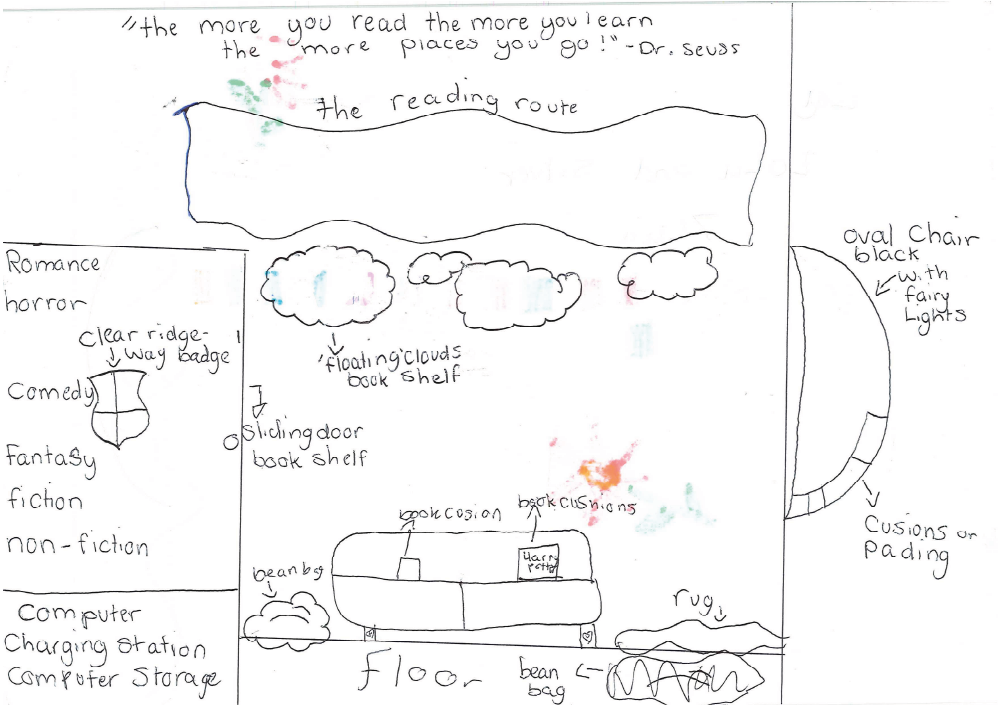 "the more you read the more you learn
the more places you go!" - Dr. Seuss
the reading route
Romance
horror
clear ridge-
way badge
Comedy
fantasy
fiction
non-fiction
Computer
Charging Station
Computer Storage
'floating' clouds
book shelf
Sliding door
book shelf
book cusion
book cushions
Harry
Potter
bean bag
rug
floor
bean
bag
oval Chair
black
with
fairy
Lights
Cusions or
Pading